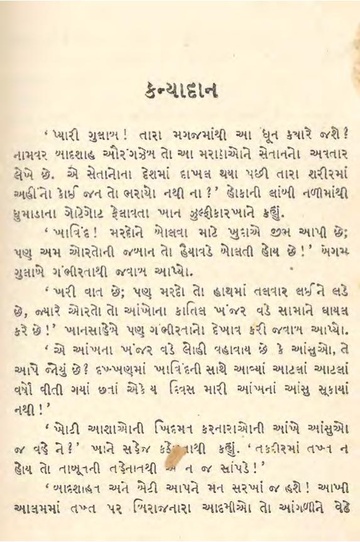 કન્યાદાન
‘ પ્યારી ગુલાબ ! તારા મગજમાંથી આ ધૂન ક્યારે જશે ?
નામવર બાદશાહ ઔરંગઝેબ તો આ મરાઠાઓને સેતાનનો અવતાર
લેખે છે. એ સેતાનોના દેશમાં દાખલ થયા પછી તારા શરીરમાં
અહીંનો કોઈ જન તો ભરાયો નથી ના ? ’ હોકાની લાંબી નળીમાંથી
ધુમાડાના ગોટેગોટ ફેલાવતા ખાન ઝુલ્ફીકારખાને કહ્યું.
‘ ખાવિંદ ! મરદોને બોલવા માટે ખુદાએ જીભ આપી છે;
પણ અમ ઓરતોની જબાન તો હૈયાવડે બોલતી હોય છે ! ’ બેગમ
ગુલાબે ગંભીરતાથી જવાબ આપ્યો.
‘ ખરી વાત છે; પણ મરદો તો હાથમાં તલવાર લઈને લડે
છે, જ્યારે ઓરતો તો આંખોના કાતિલ ખંજર વડે સામાને ઘાયલ
કરે છે ! ’ ખાનસાહેબે પણ ગંભીરતાનો દેખાવ કરી જવાબ આપ્યો.
‘ એ આંખના ખંજર વડે લોહી વહાવાય છે કે આંસુઓ, તે
આપે જોયું છે ? દખ્ખણમાં ખાવિંદની સાથે આવ્યાં આટલાં આટલાં
વર્ષો વીતી ગયાં છતાં એકેય દિવસ મારી આંખનાં આંસુ સૂકાયાં
નથી ! ’
‘ ખોટી આશાઓની ખિદમત કરનારાઓની આંખે આંસુઓ
જ વહે ને ? ’ ખાને સહેજ કહેરતાથી કહ્યું. ‘ તકદીરમાં તખ્ત ન
હોય તો તાબૂતની તહેનાતથી એ ન જ સાંપડે ! ’
‘ બાદશાહત અને બેટી આપને મન સરખાં જ હશે ! આખી
આલમમાં તખ્ત પર બિરાજનારા આદમીઓ તો આંગળીને વેઢે